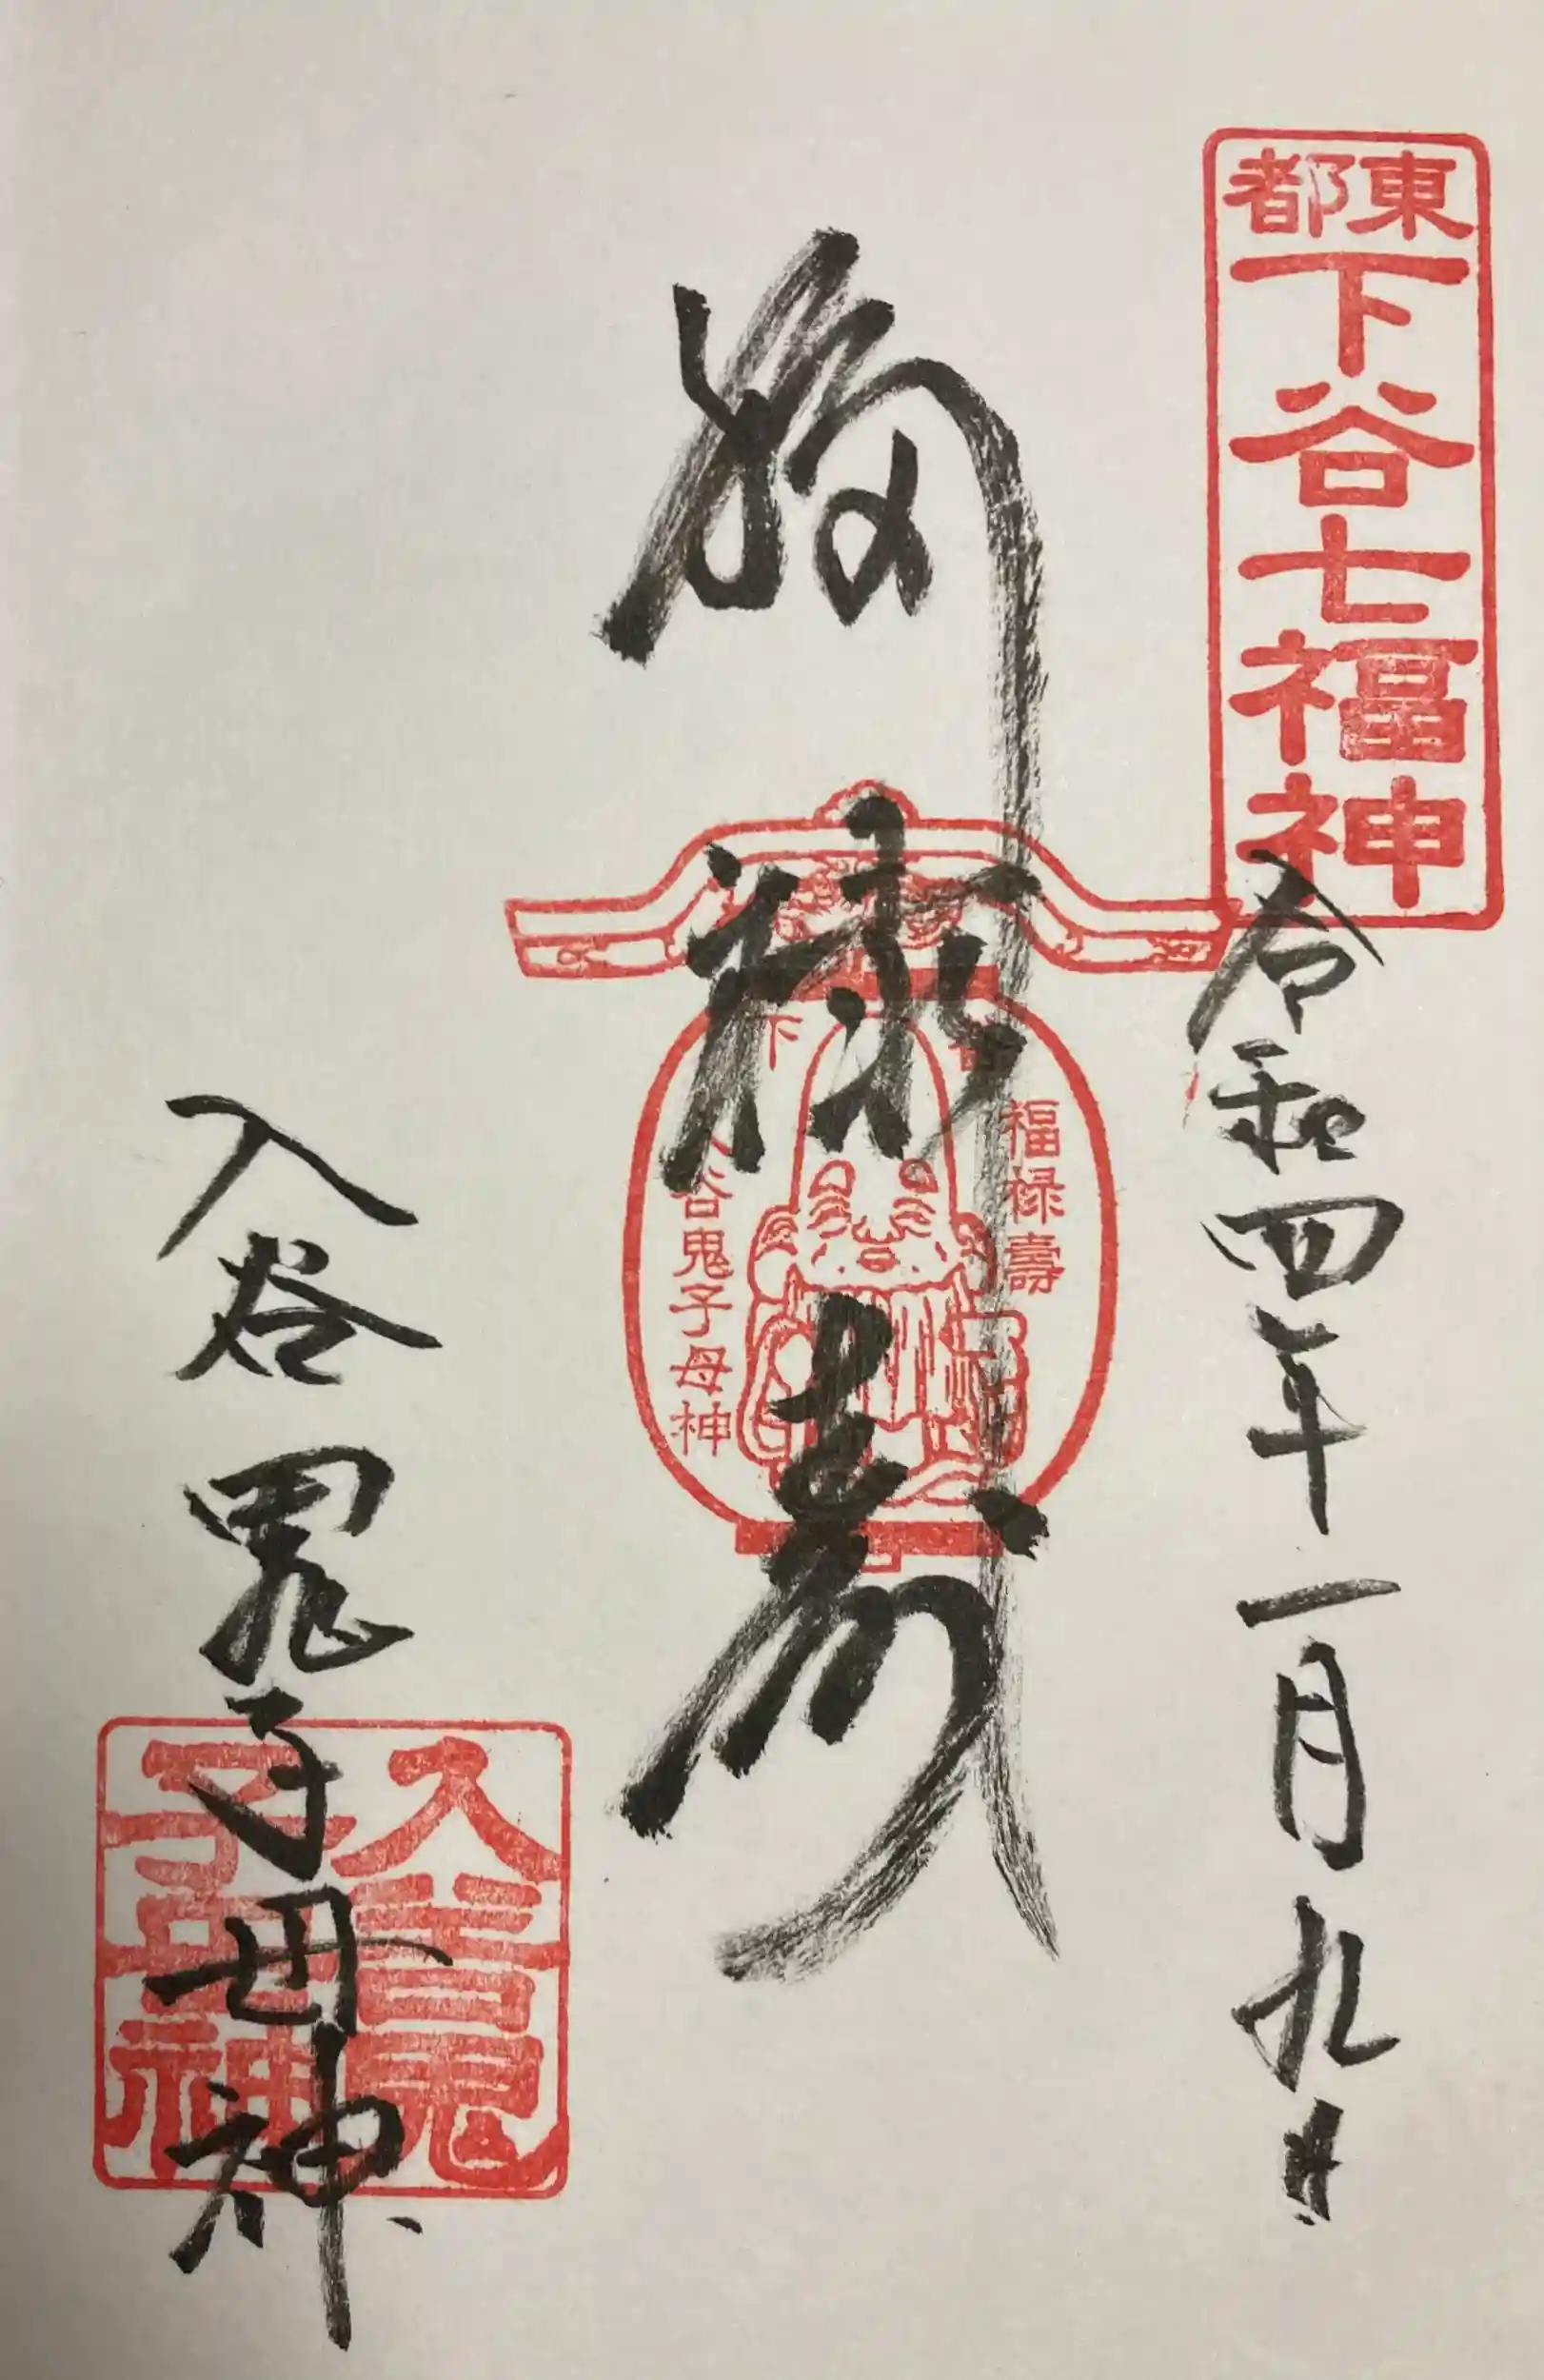 東都
下谷七福神
令和四年一月九日
福禄寿
福禄壽
下
谷鬼子母神
入谷鬼子母神
入谷鬼
子母神